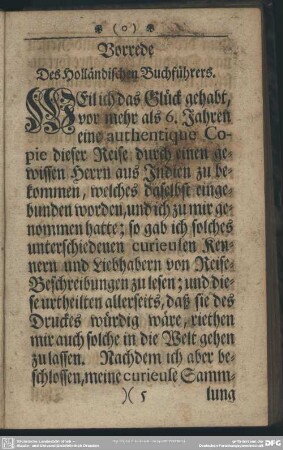 ❀ ( o ) ❀
Vorrede
Des Holländischen Buchführers.
WEil ich das Glück gehabt,
vor mehr als 6. Jahren
eine authentique Co-
pie dieser Reise durch einen ge-
wissen Herrn aus Indien zu be-
kommen, welches daselbst einge-
bunden worden, und ich zu mir ge-
nommen hatte; so gab ich solches
unterschiedenen curieusen Ken-
nern und Liebhabern von Reise-
Beschreibungen zu lesen; und die-
se urtheilten allerseits, daß sie des
Druckes würdig wäre, riethen
mir auch solche in die Welt gehen
zu lassen. Nachdem ich aber be-
schlossen, meine curieuse Samm-
)( 5 lung